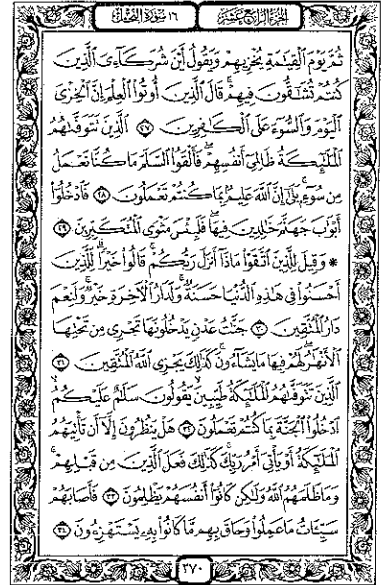 الجزء الرابع عشر ١٦ سورة النحل
ثُمَّ يَوْمَ ٱلْقِيَٰمَةِ يُخْزِيهِمْ وَيَقُولُ أَيْنَ شُرَكَآءِىَ ٱلَّذِينَ
كُنتُمْ تُشَٰٓقُّونَ فِيهِمْ ۚ قَالَ ٱلَّذِينَ أُوتُوا۟ ٱلْعِلْمَ إِنَّ ٱلْخِزْىَ
ٱلْيَوْمَ وَٱلسُّوٓءَ عَلَى ٱلْكَٰفِرِينَ ٢٧ ٱلَّذِينَ تَتَوَفَّىٰهُمُ
ٱلْمَلَٰٓئِكَةُ ظَالِمِىٓ أَنفُسِهِمْ ۖ فَأَلْقَوُا۟ ٱلسَّلَمَ مَا كُنَّا نَعْمَلُ
مِن سُوٓءٍۭ ۚ بَلَىٰٓ إِنَّ ٱللَّهَ عَلِيمٌۢ بِمَا كُنتُمْ تَعْمَلُونَ ٢٨ فَٱدْخُلُوٓا۟
أَبْوَٰبَ جَهَنَّمَ خَٰلِدِينَ فِيهَا ۖ فَلَبِئْسَ مَثْوَى ٱلْمُتَكَبِّرِينَ ٢٩
* وَقِيلَ لِلَّذِينَ ٱتَّقَوْا۟ مَاذَآ أَنزَلَ رَبُّكُمْ ۚ قَالُوا۟ خَيْرًا ۗ لِّلَّذِينَ
أَحْسَنُوا۟ فِى هَٰذِهِ ٱلدُّنْيَا حَسَنَةٌ ۚ وَلَدَارُ ٱلْءَاخِرَةِ خَيْرٌ ۚ وَلَنِعْمَ
دَارُ ٱلْمُتَّقِينَ ٣٠ جَنَّٰتُ عَدْنٍ يَدْخُلُونَهَا تَجْرِى مِن تَحْتِهَا
ٱلْأَنْهَٰرُ ۖ لَهُمْ فِيهَا مَا يَشَآءُونَ ۚ كَذَٰلِكَ يَجْزِى ٱللَّهُ ٱلْمُتَّقِينَ ٣١
ٱلَّذِينَ تَتَوَفَّىٰهُمُ ٱلْمَلَٰٓئِكَةُ طَيِّبِينَ ۙ يَقُولُونَ سَلَٰمٌ عَلَيْكُمُ
ٱدْخُلُوا۟ ٱلْجَنَّةَ بِمَا كُنتُمْ تَعْمَلُونَ ٣٢ هَلْ يَنظُرُونَ إِلَّآ أَن تَأْتِيَهُمُ
ٱلْمَلَٰٓئِكَةُ أَوْ يَأْتِىَ أَمْرُ رَبِّكَ ۚ كَذَٰلِكَ فَعَلَ ٱلَّذِينَ مِن قَبْلِهِمْ ۚ
وَمَا ظَلَمَهُمُ ٱللَّهُ وَلَٰكِن كَانُوٓا۟ أَنفُسَهُمْ يَظْلِمُونَ ٣٣ فَأَصَابَهُمْ
سَيِّـَٔاتُ مَا عَمِلُوا۟ وَحَاقَ بِهِم مَّا كَانُوا۟ بِهِۦ يَسْتَهْزِءُونَ ٣٤
٢٧٠